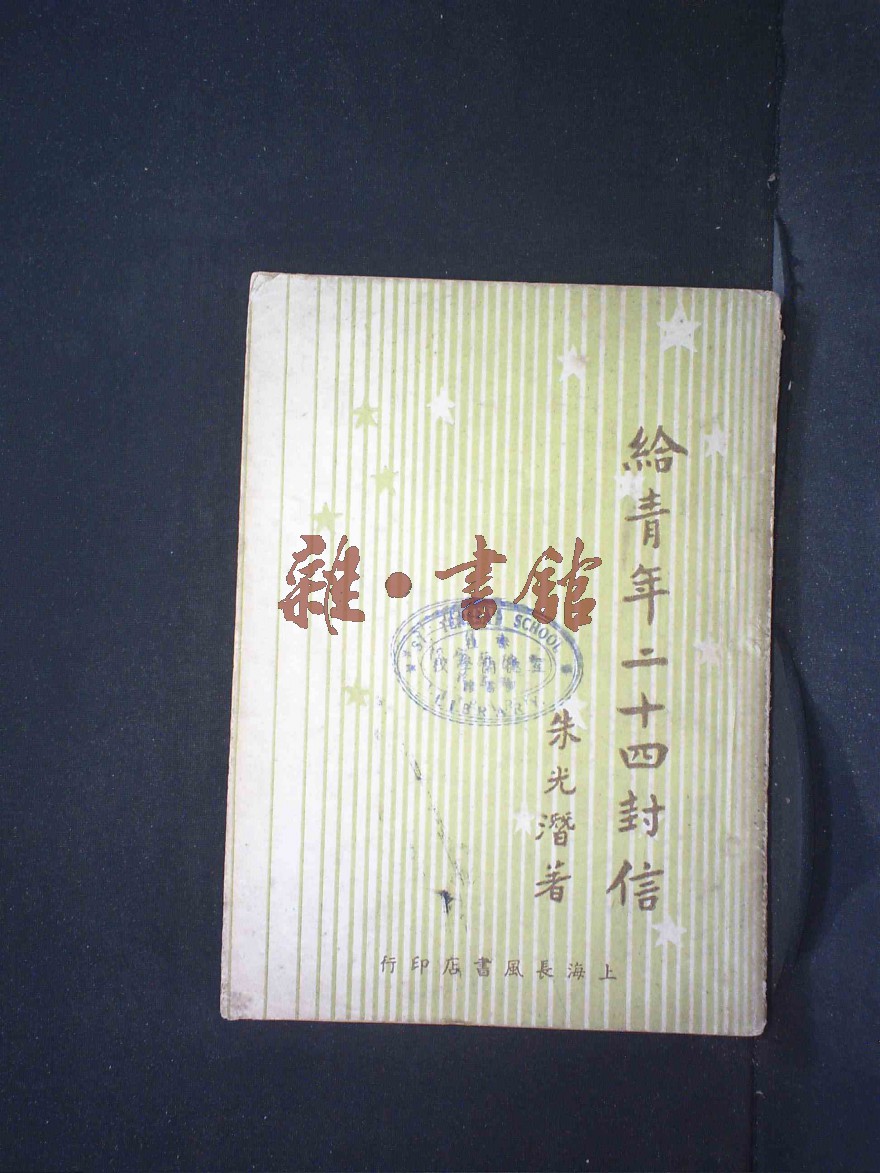 給青年二十四封信
朱光潛著
上海長風書店印行
雜·書館
SCHOOL
LIBRARY